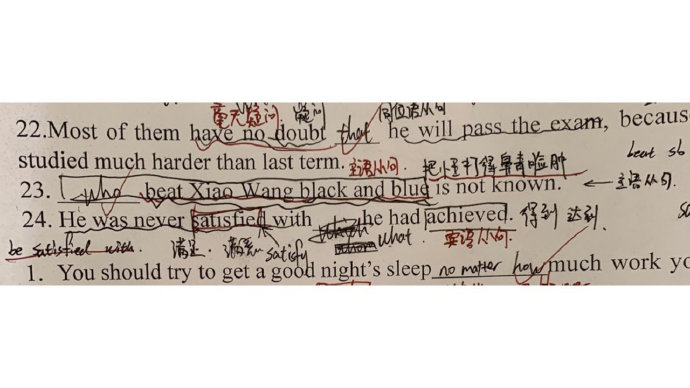 毫无疑问. 疑问 同位语从句
22.Most of them have no doubt that he will pass the exam, becaus
studied much harder than last term. 主语从句. 把小王打得鼻青脸肿 beat sb
23. who beat Xiao Wang black and blue is not known. ← 主语从句.
24. He was never satisfied with what he had achieved. 得到 达到.
be satisfied with. 满足. satisfy 宾语从句.
1. You should try to get a good night's sleep no matter how much work yo